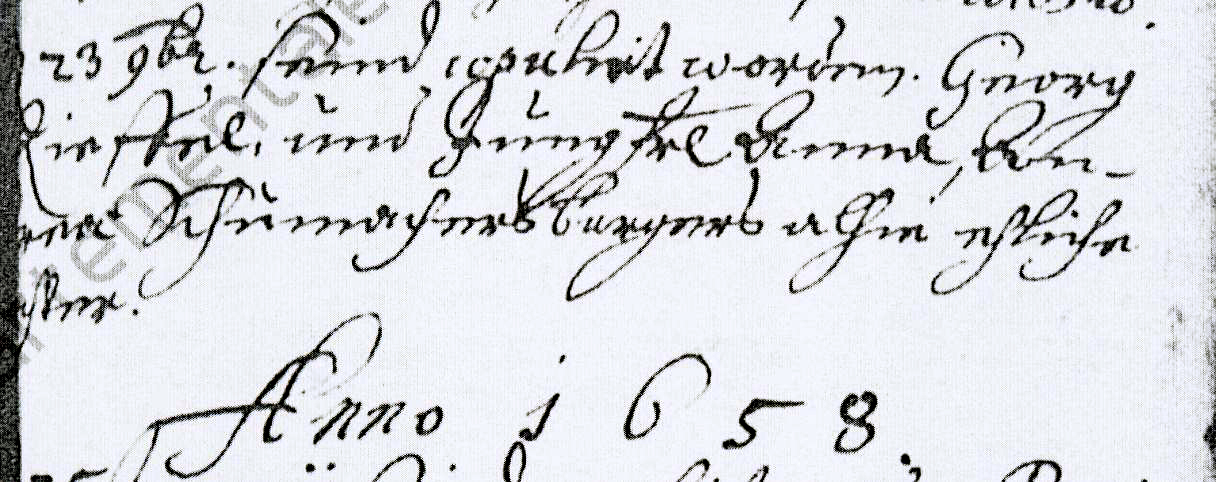 23 9br. seind copulirt worden. Georg
und Jungfr Anna, Con-
rad Schumachers burgers alhie ehliche
Anno 1658.